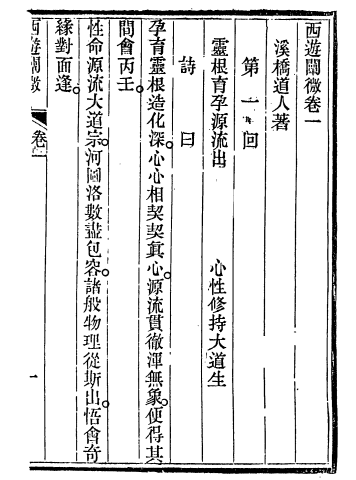 西遊闡微卷一
溪橋道人著
第一回
靈根育孕源流出　心性修持大道生
詩曰
孕育靈根造化深。心心相契契真心。源流貫徹渾無象。便得其
間會丙壬。
性命源流大道宗。河圖洛數盡包容。諸般物理從斯出。悟會奇
緣對面逢。
西遊闡微　卷一　一